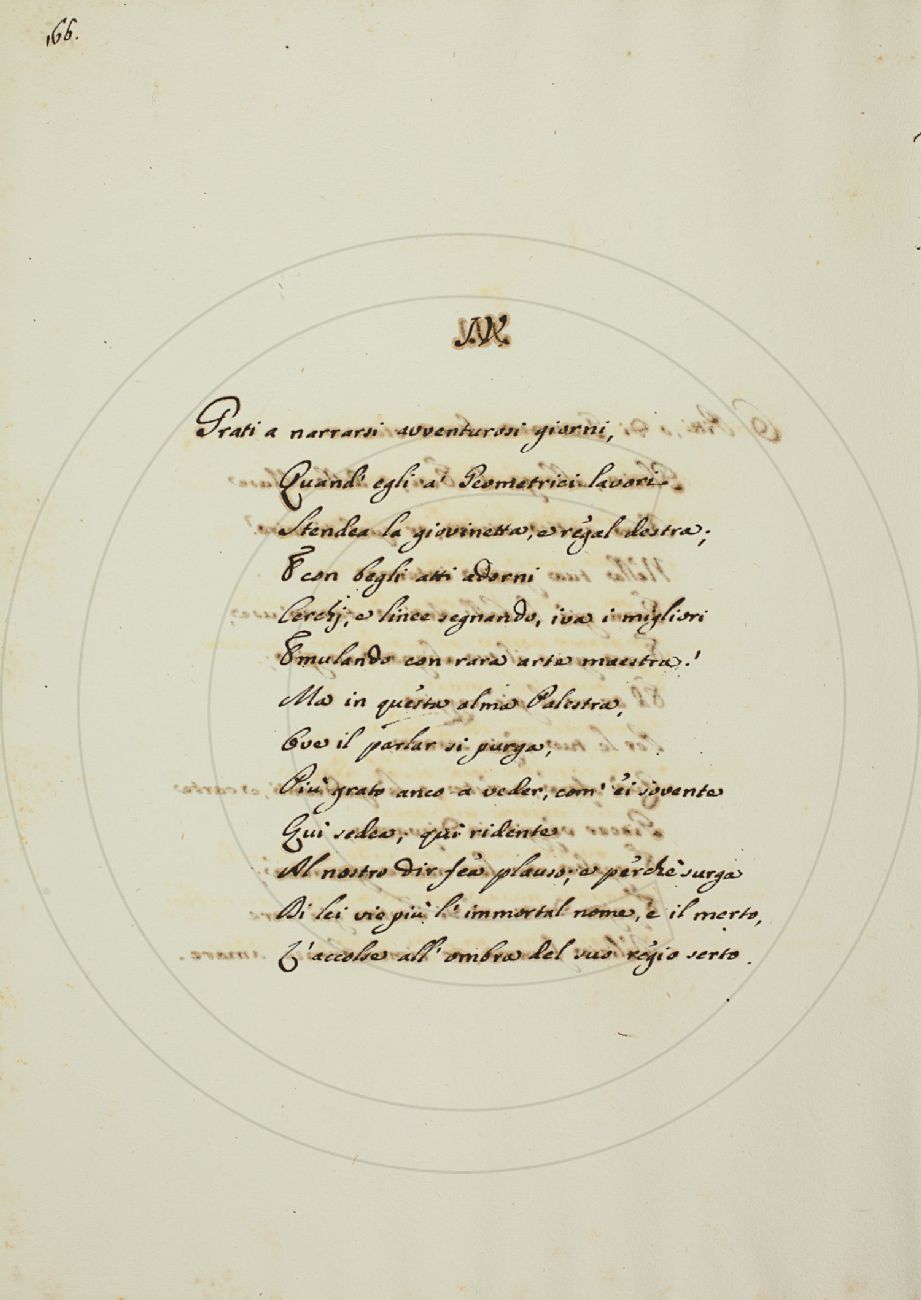 166.
Grati a narrarsi avventurosi giorni,
Quand' egli a' Geometrici lavori
Stendea la giovinetta, e regal destra;
E con begli atti adorni
Cerchj, e linee segnando, iva i migliori
Emulando con rara arte maestra!
Ma in questa alma Palestra,
Ove il parlar si purga,
Più grato anco a veder, com' ei sovente
Qui sedea, qui ridente
Al nostro dir fea plauso; e perchè surga
Di lei vie più l' immortal nome, e il merto,
L' accolse all' ombra del suo regio serto.